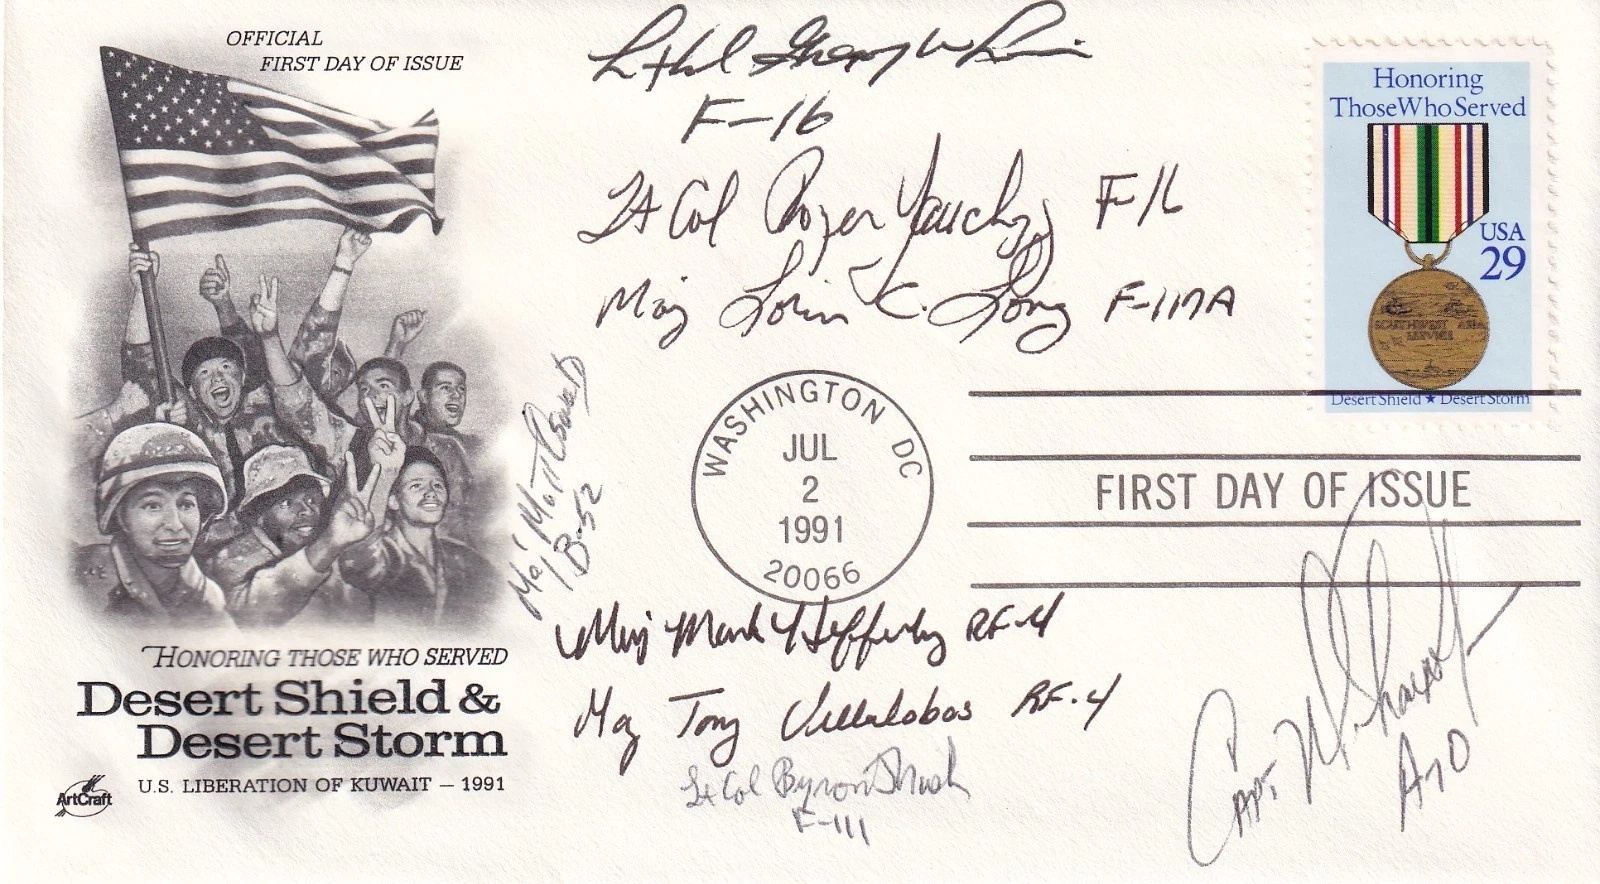 OFFICIAL
FIRST DAY OF ISSUE
F-16
Lt Col Roger F-16
Maj Lorin C. Long F-117A
Honoring
Those Who Served
USA
29
SOUTHWEST ASIA
SERVICE
Desert Shield ★ Desert Storm
WASHINGTON DC
JUL
2
1991
20066
FIRST DAY OF ISSUE
Maj
B-52
Maj Mark Hefferly RF-4
Maj Tony Villalobos RF-4
Lt Col Byron
F-111
Capt.
HONORING THOSE WHO SERVED
Desert Shield &
Desert Storm
U.S. LIBERATION OF KUWAIT — 1991
ArtCraft